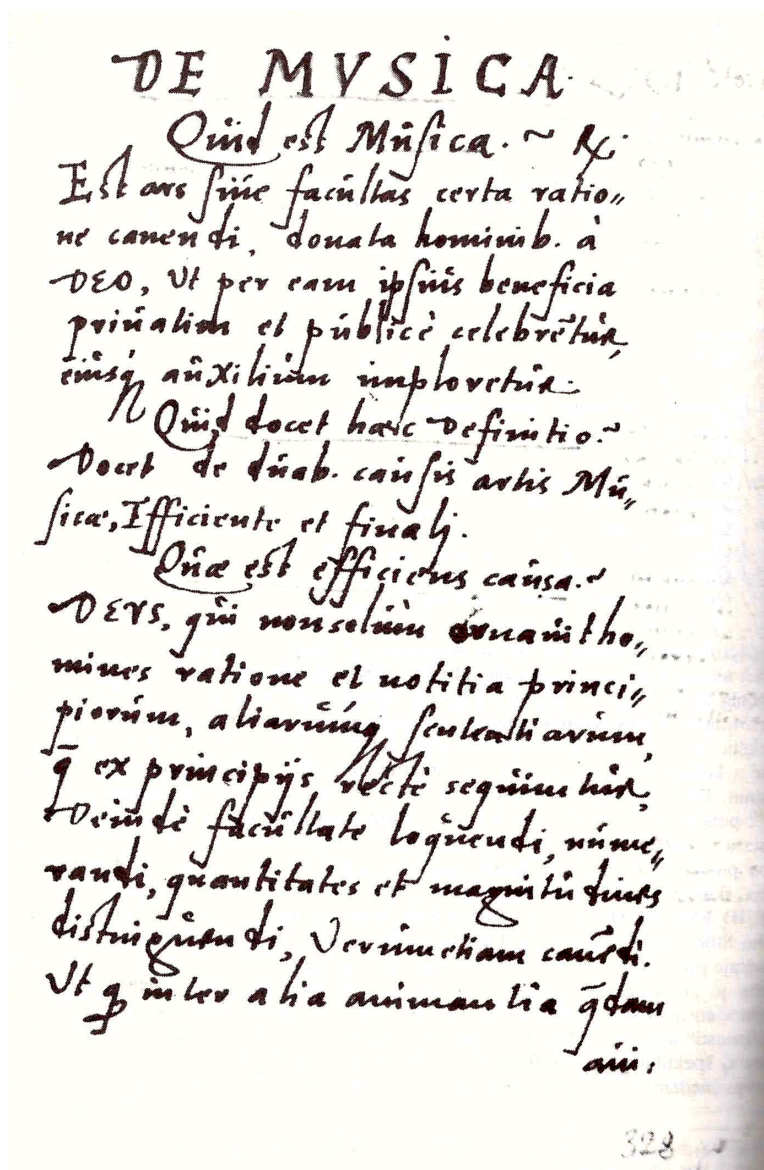 DE MVSICA.
Quid est Musica. ~ ℞.
Est ars siue facultas certa ratio„
ne canendi, donata hominib. à
DEO, Vt per eam ipsius beneficia
priuatim et publicè celebrētur,
eiusq́ auxilium imploretur.
Quid docet haec Definitio.~
Docet de duab. causis artis Mu„
sicæ, Efficiente et finali.
Quæ est efficiens causa.~
DEVS, qui non solùm ornauit ho„
mines ratione et notitia princi„
piorum, aliarumq sententiarum,
q̄ ex principijs rectè sequuntur,
Deindè facultate loquendi, nume„
randi, quantitates et magnitudines
distinguendi, Verumetiam canēdi.
Vt ꝗ inter alia animantia q̄dam
aui:
328